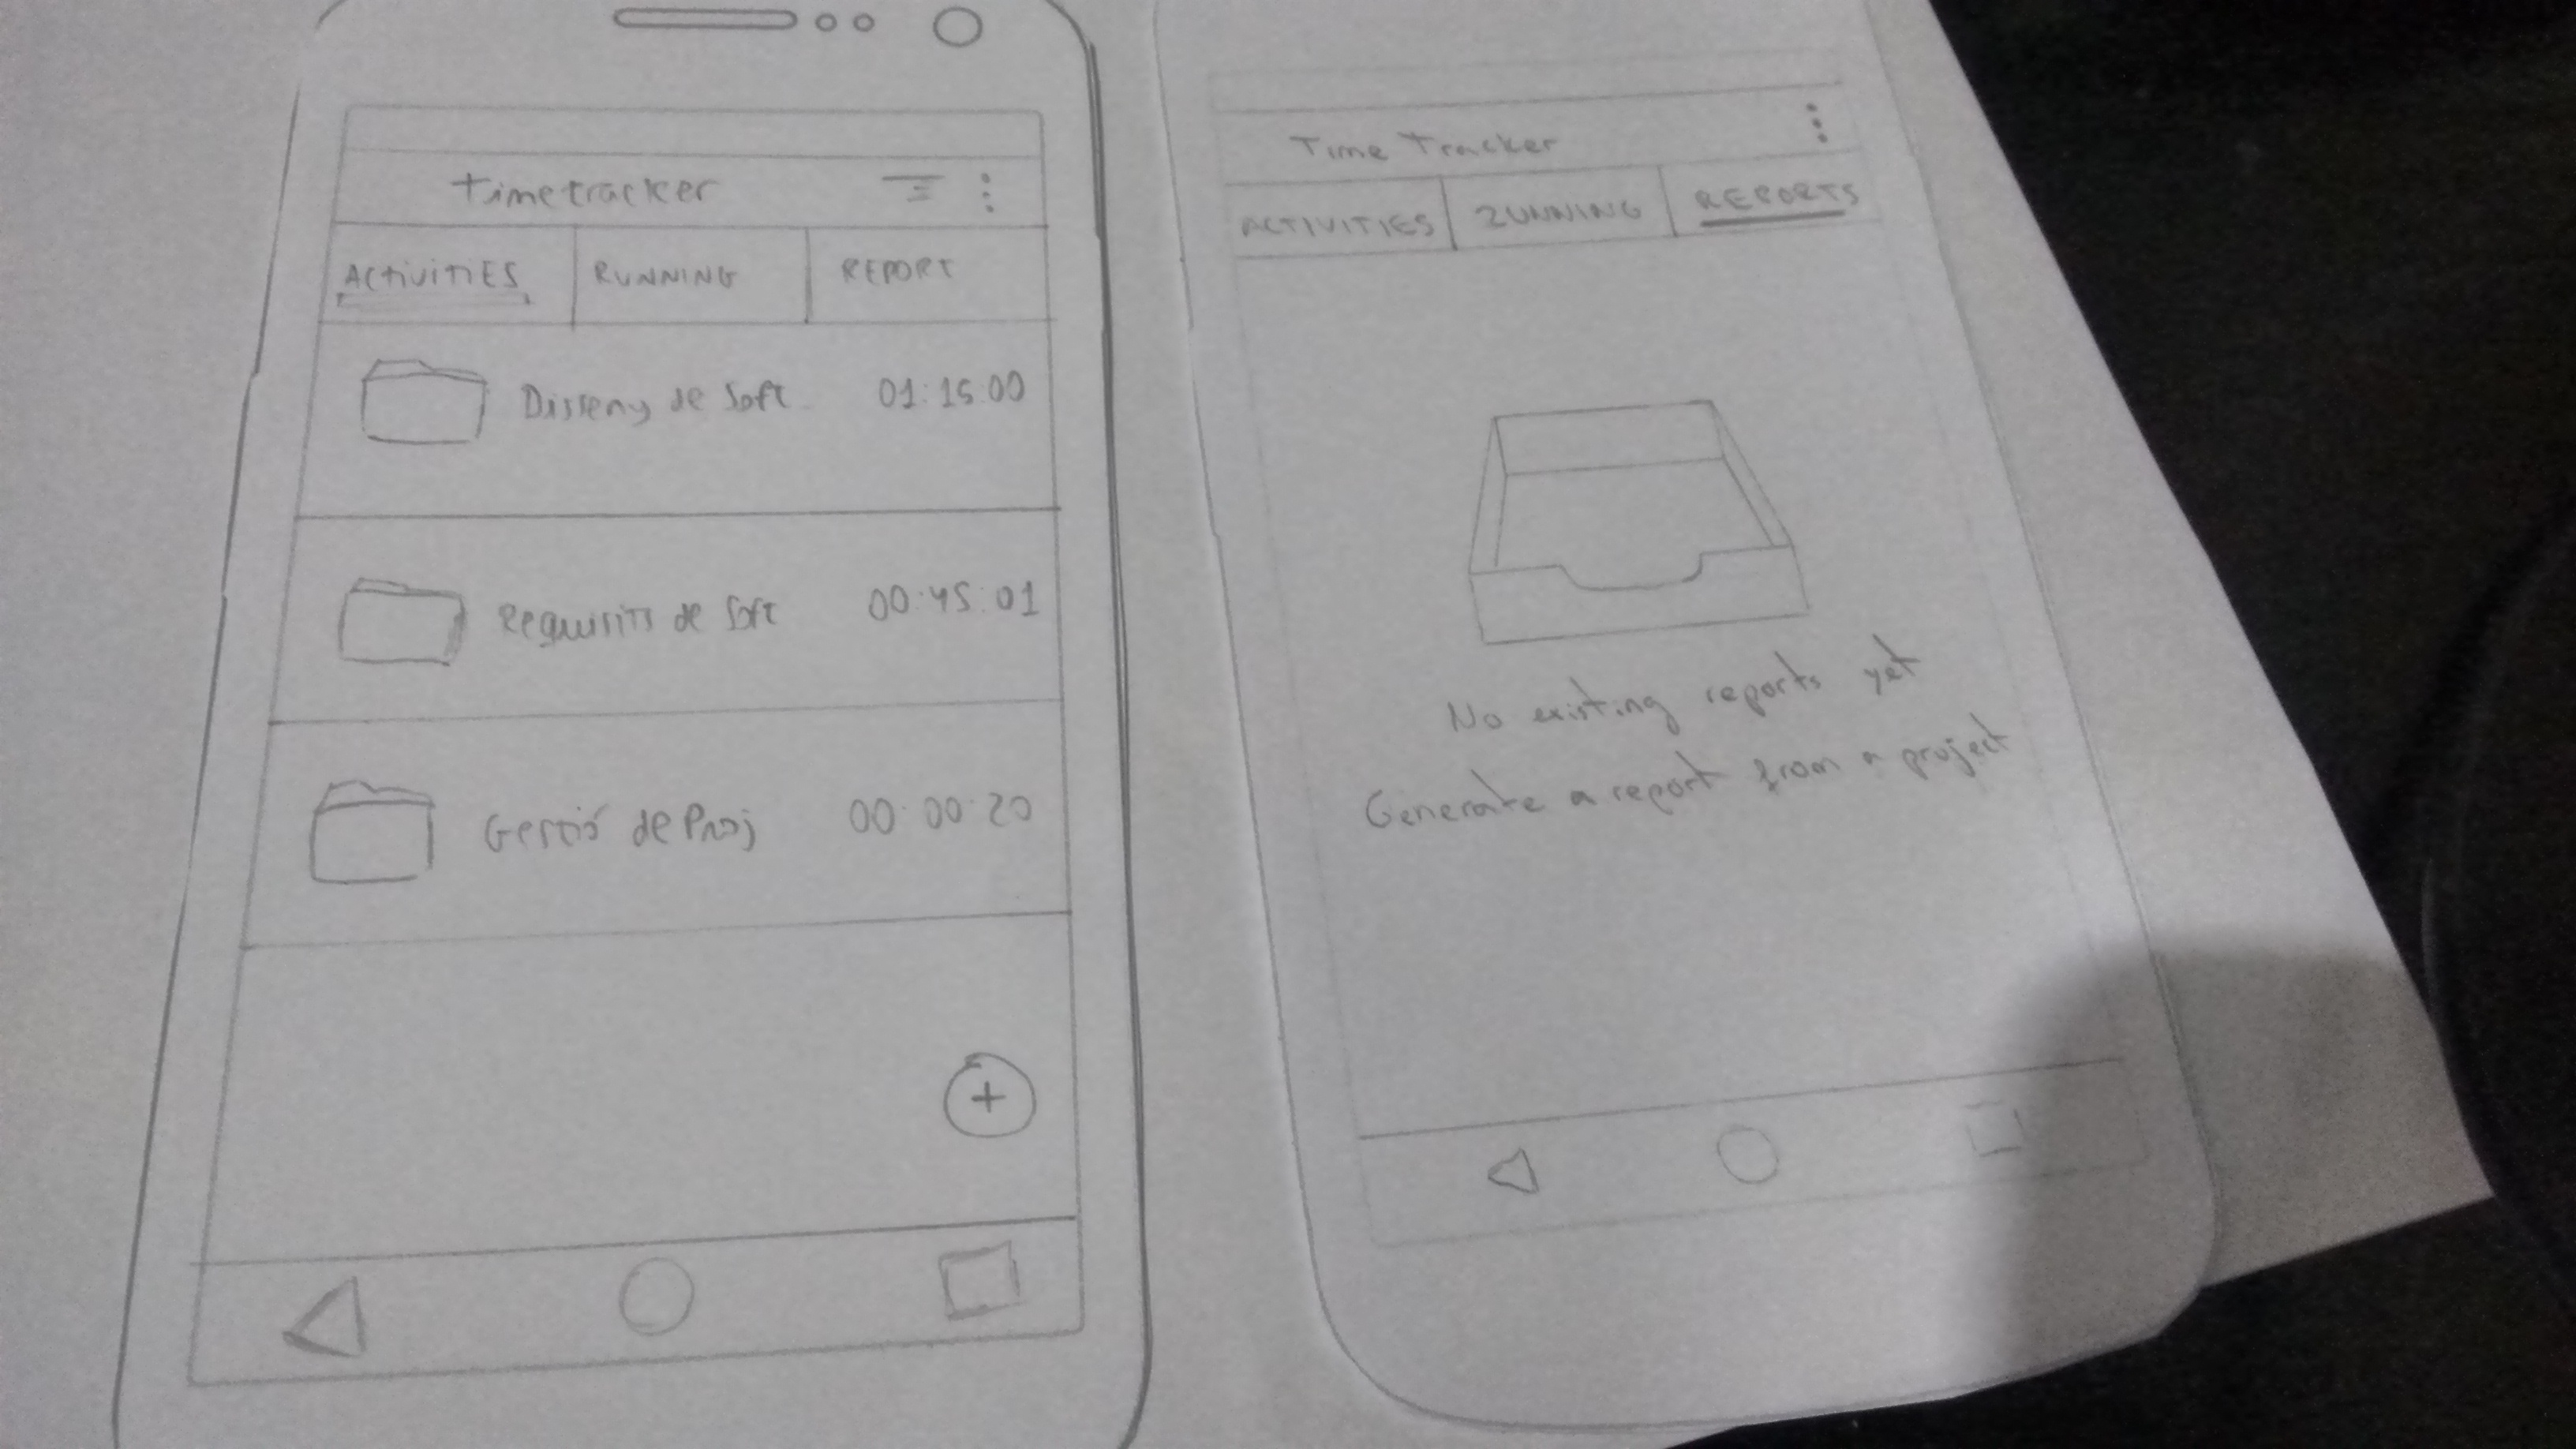 Timetracker
ACTIVITIES RUNNING REPORT
Disseny de Soft. 01:15:00
Requisits de Soft 00:45:01
Gestió de Proj 00:00:20
+
Time Tracker
ACTIVITIES RUNNING REPORTS
No existing reports yet
Generate a report from a project